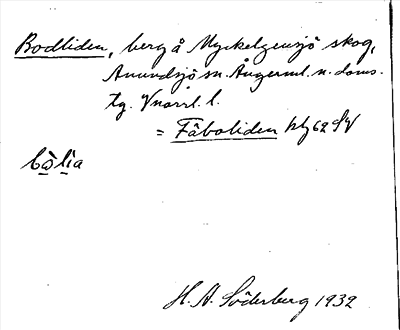 Bodliden, berg å Myckelgensjö skog,
Anundsjö sn. Ångerml. n. doms.
tg. Vnorrl. l.
= Fäboliden kbl 62 SV
bòlia
H. A. Söderberg 1932